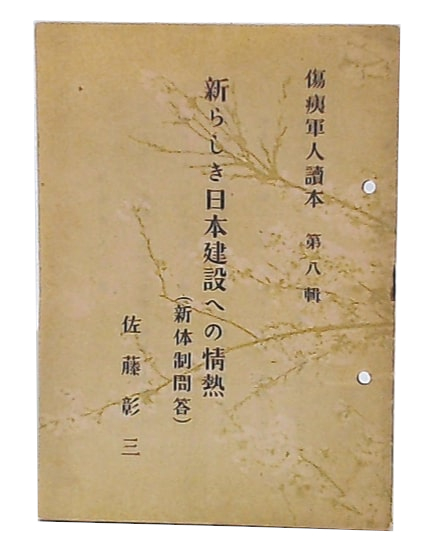 傷痍軍人讀本 第八輯
新らしき日本建設への情熱
(新体制問答)
佐藤彰三